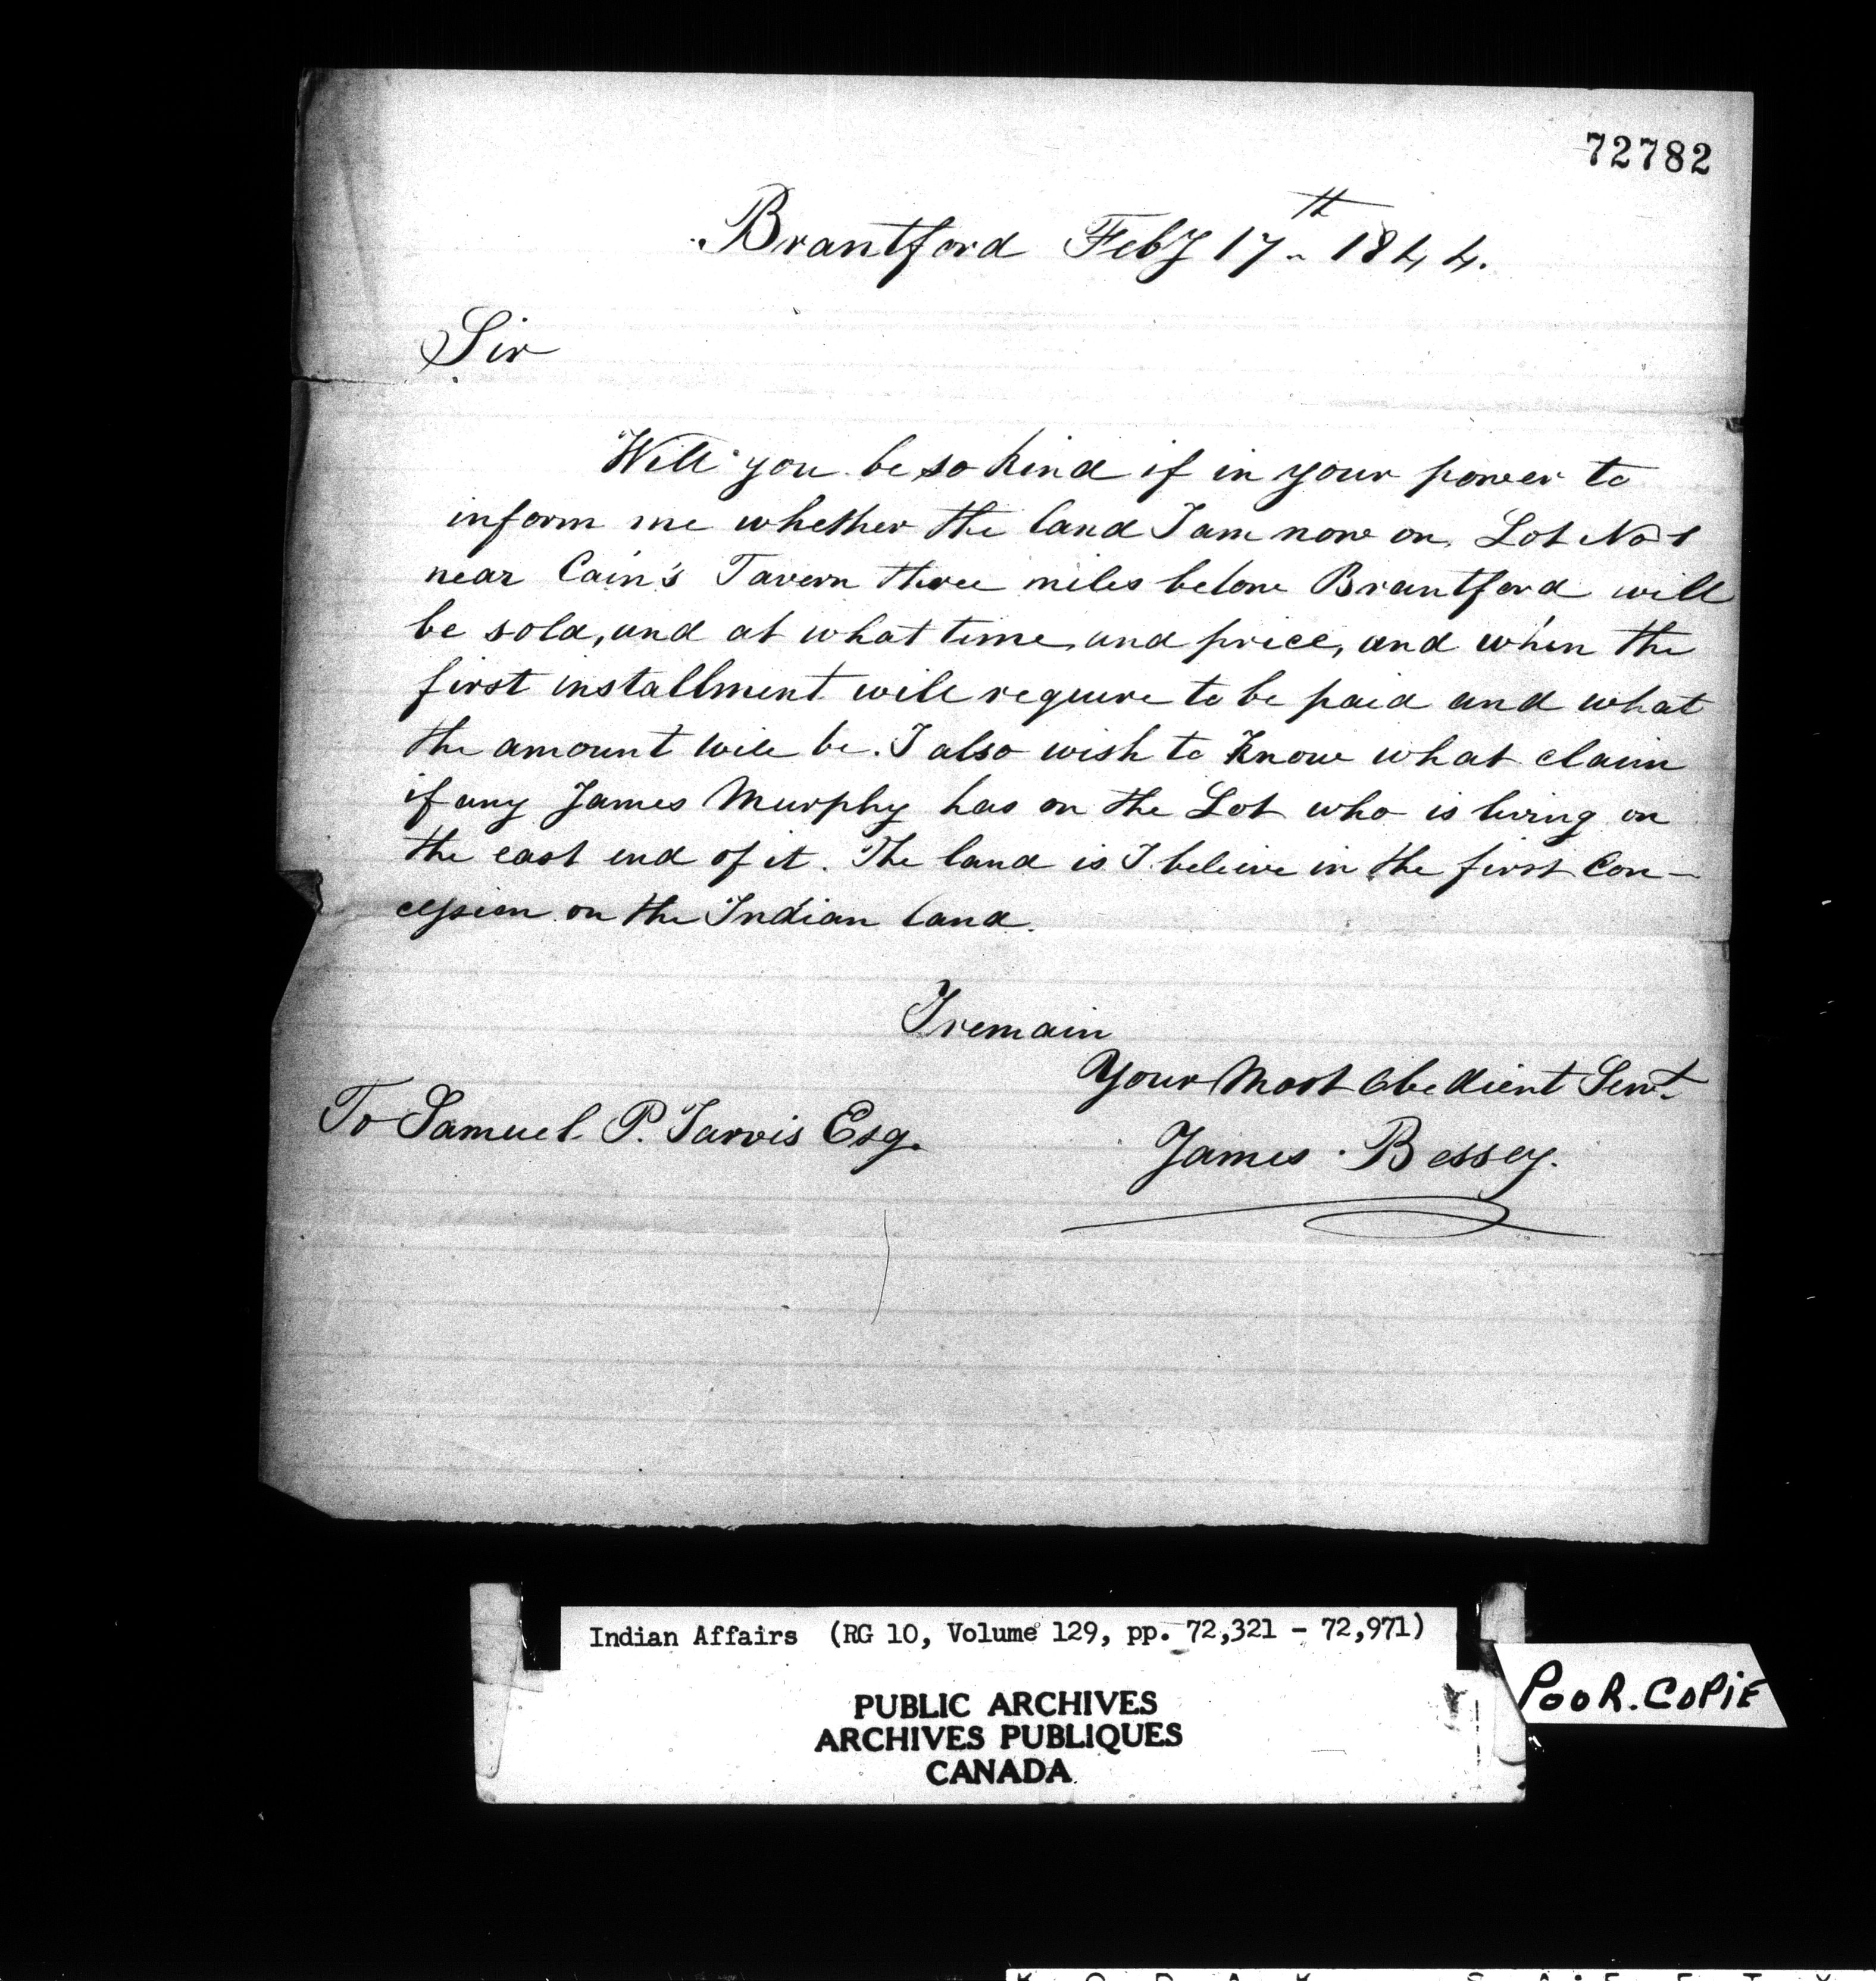 72782
Brantford Feby 17th 1844.
Sir
Will you be so kind if in your power to
inform me whether the land I am now on, Lot No 1
near Cain's Tavern three miles below Brantford will
be sold, and at what time and price, and when the
first installment will require to be paid and what
the amount will be. I also wish to know what claim
if any James Murphy has on the Lot who is living on
the east end of it. The land is I believe in the first Con-
cession on the Indian land.
I remain
Your Most Obedient Servt.
To Samuel P. Jarvis Esq.
James Bessey.
Indian Affairs (RG 10, Volume 129, pp. 72,321 - 72,971)
PUBLIC ARCHIVES
ARCHIVES PUBLIQUES
CANADA
POOR.COPIE